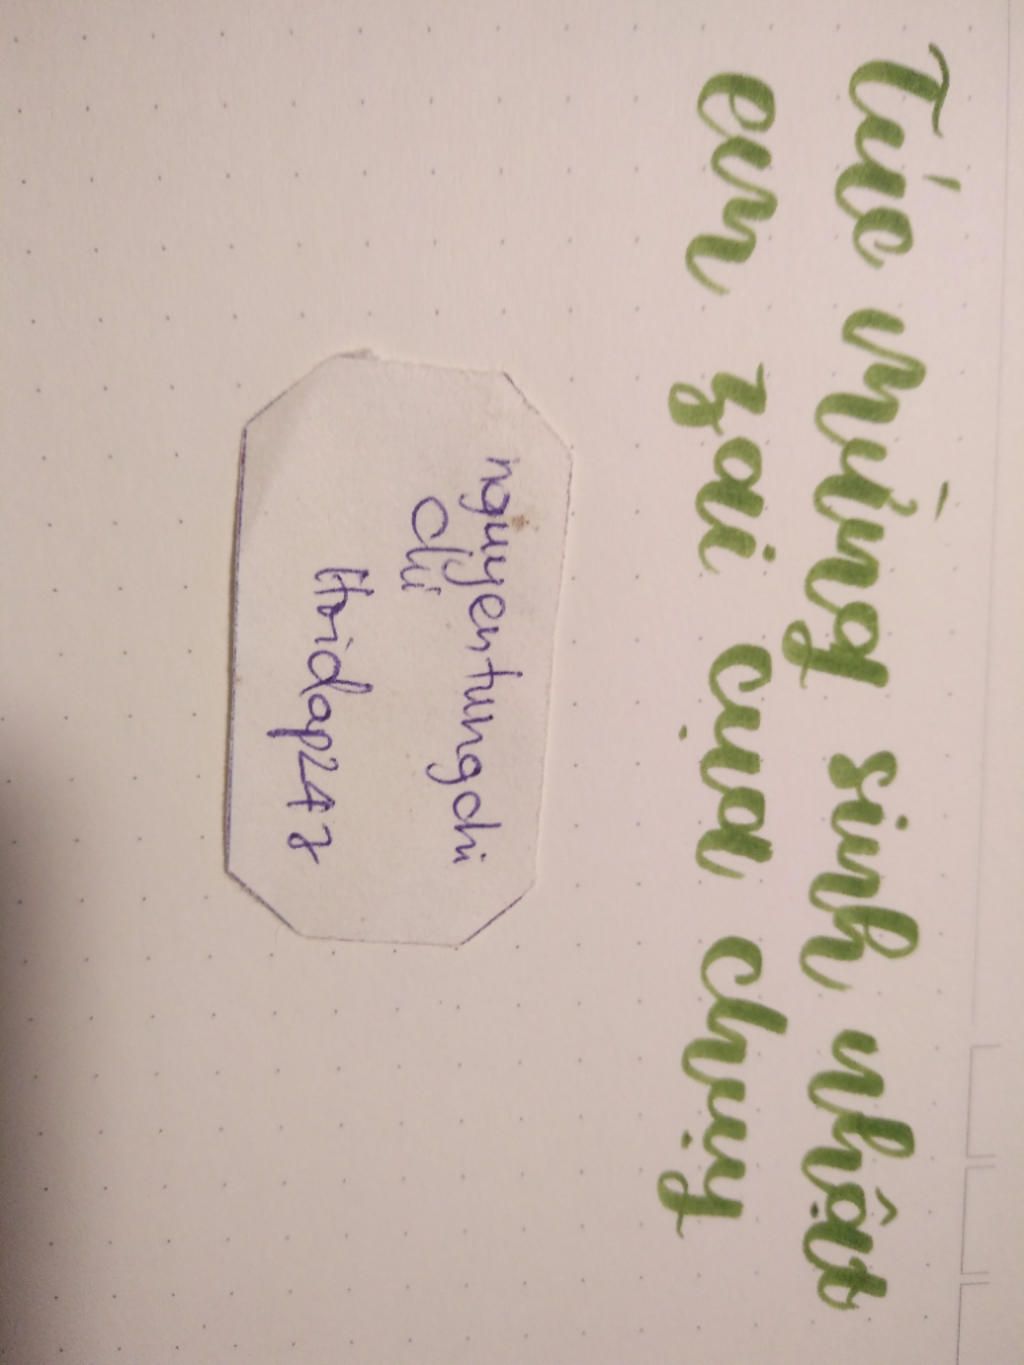 Túc mừng sinh nhật
em zai cụa chụy
nguyentungchi
Chi
Hoidap247